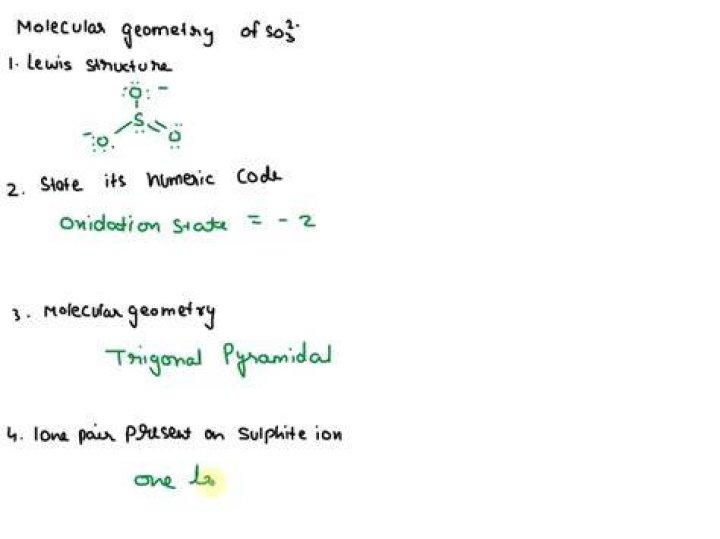 Molecular geometry of SO₃²⁻
1. Lewis structure
:Ö: −
S
− :O. O
2. State its numeric code
Oxidation state = - 2
3. Molecular geometry
Trigonal Pyramidal
4. lone pair present on sulphite ion
one